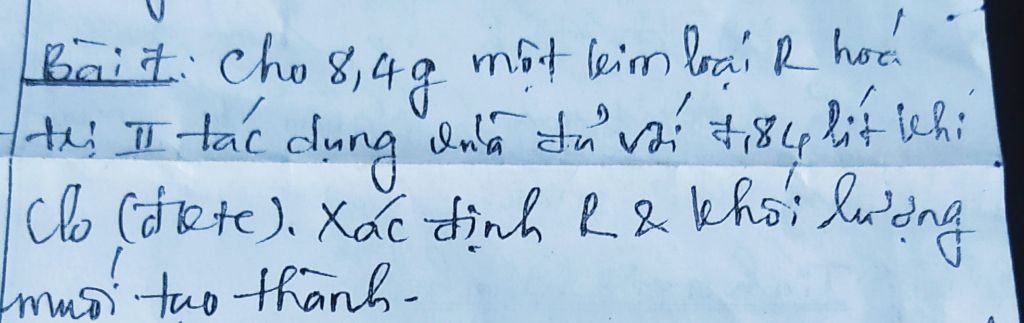 Bài 7: Cho 8,4g một kim loại R hoá
trị II tác dụng vừa đủ với 7,84 lít khí
Clo (đktc). Xác định R & khối lượng
muối tạo thành.